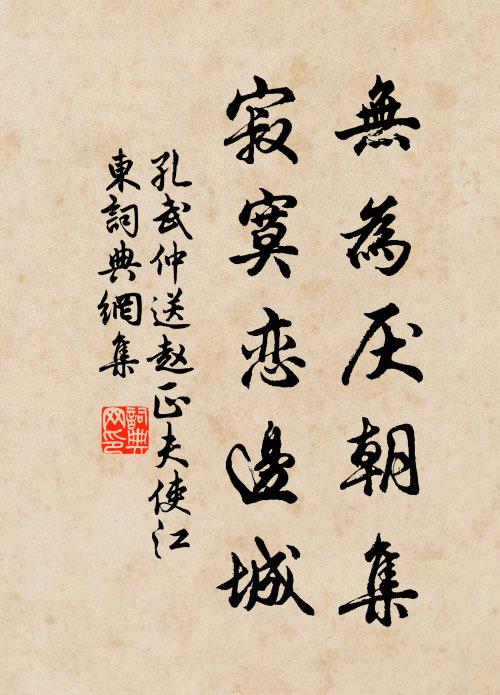 無為厌朝集
寂寞恋邊城
孔武仲送赵正夫使江
東詞典網集
詞典
网印